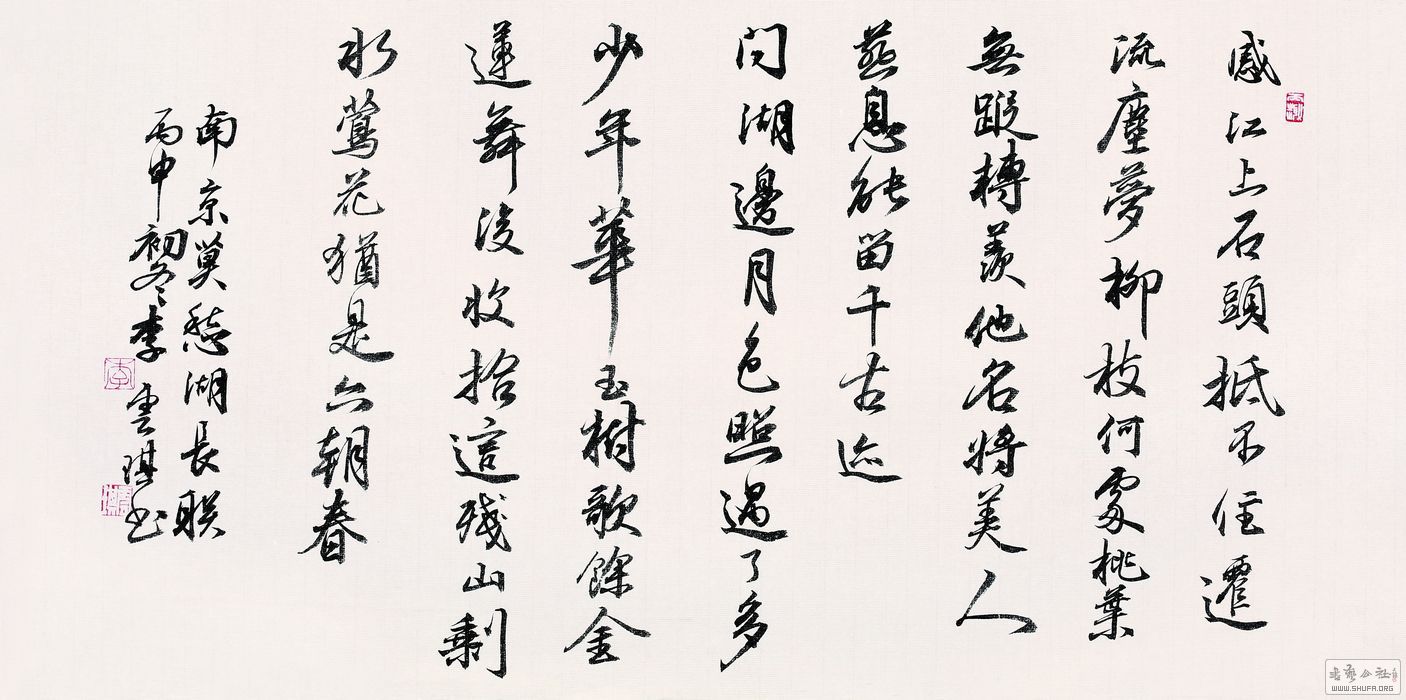 感江上石頭抵不住遷
流塵夢柳枝何處桃葉
無蹤轉羨他名將美人
燕息能留千古迹
问湖邊月色照過了多
少年華玉樹歌餘金
蓮舞後收拾這殘山剩
水鶯花猶是六朝春
南京莫愁湖長联
丙申初冬李雲琪书
李
书艺公社
WWW.SHUFA.ORG